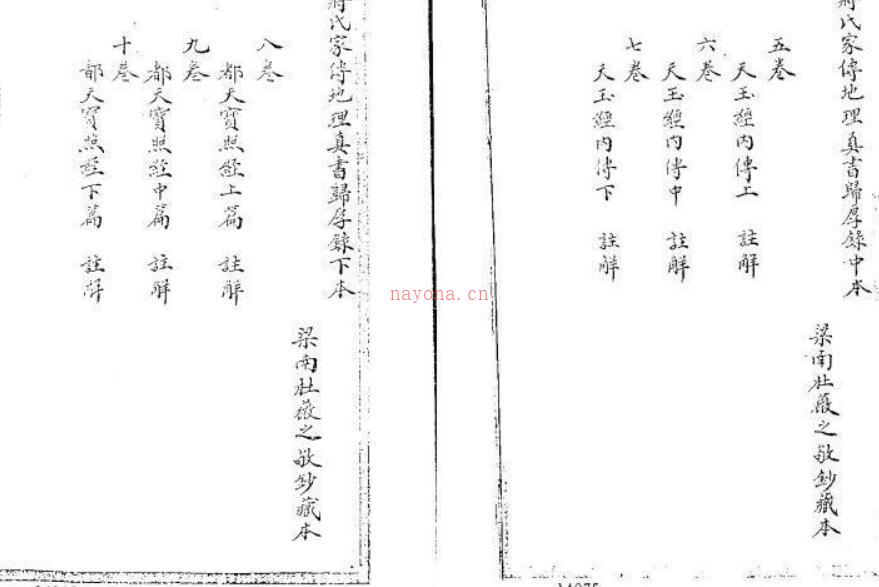 蔣氏家傳地理真書歸厚錄中本
梁南壯薇之敬鈔藏本
五卷
天玉經內傳上 註解
六卷
天玉經內傳中 註解
七卷
天玉經內傳下 註解
蔣氏家傳地理真書歸厚錄下本
梁南壯薇之敬鈔藏本
八卷
都天寶照經上篇 註解
九卷
都天寶照經中篇 註解
十卷
都天寶照經下篇 註解
nayona.cn